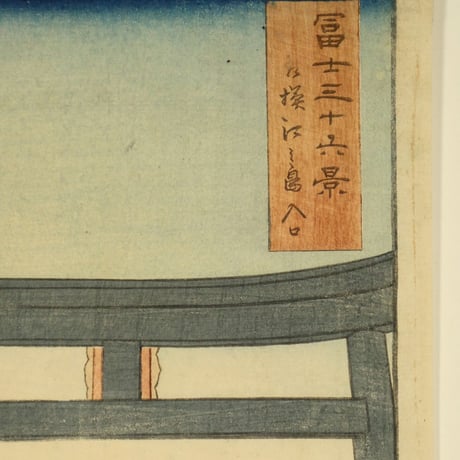 冨士三十六景
相摸江之島入口